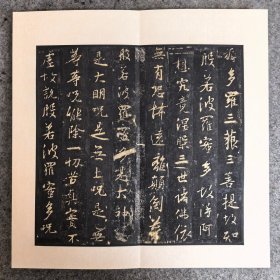 耨多羅三藐三菩提故知
般若波羅蜜多故得阿
想究竟涅槃三世諸佛依
無有恐怖遠離顛倒夢
般若波羅蜜多是大神
是大明呪是无上呪是無
等等呪能除一切苦真實不
虛故說般若波羅蜜多呪